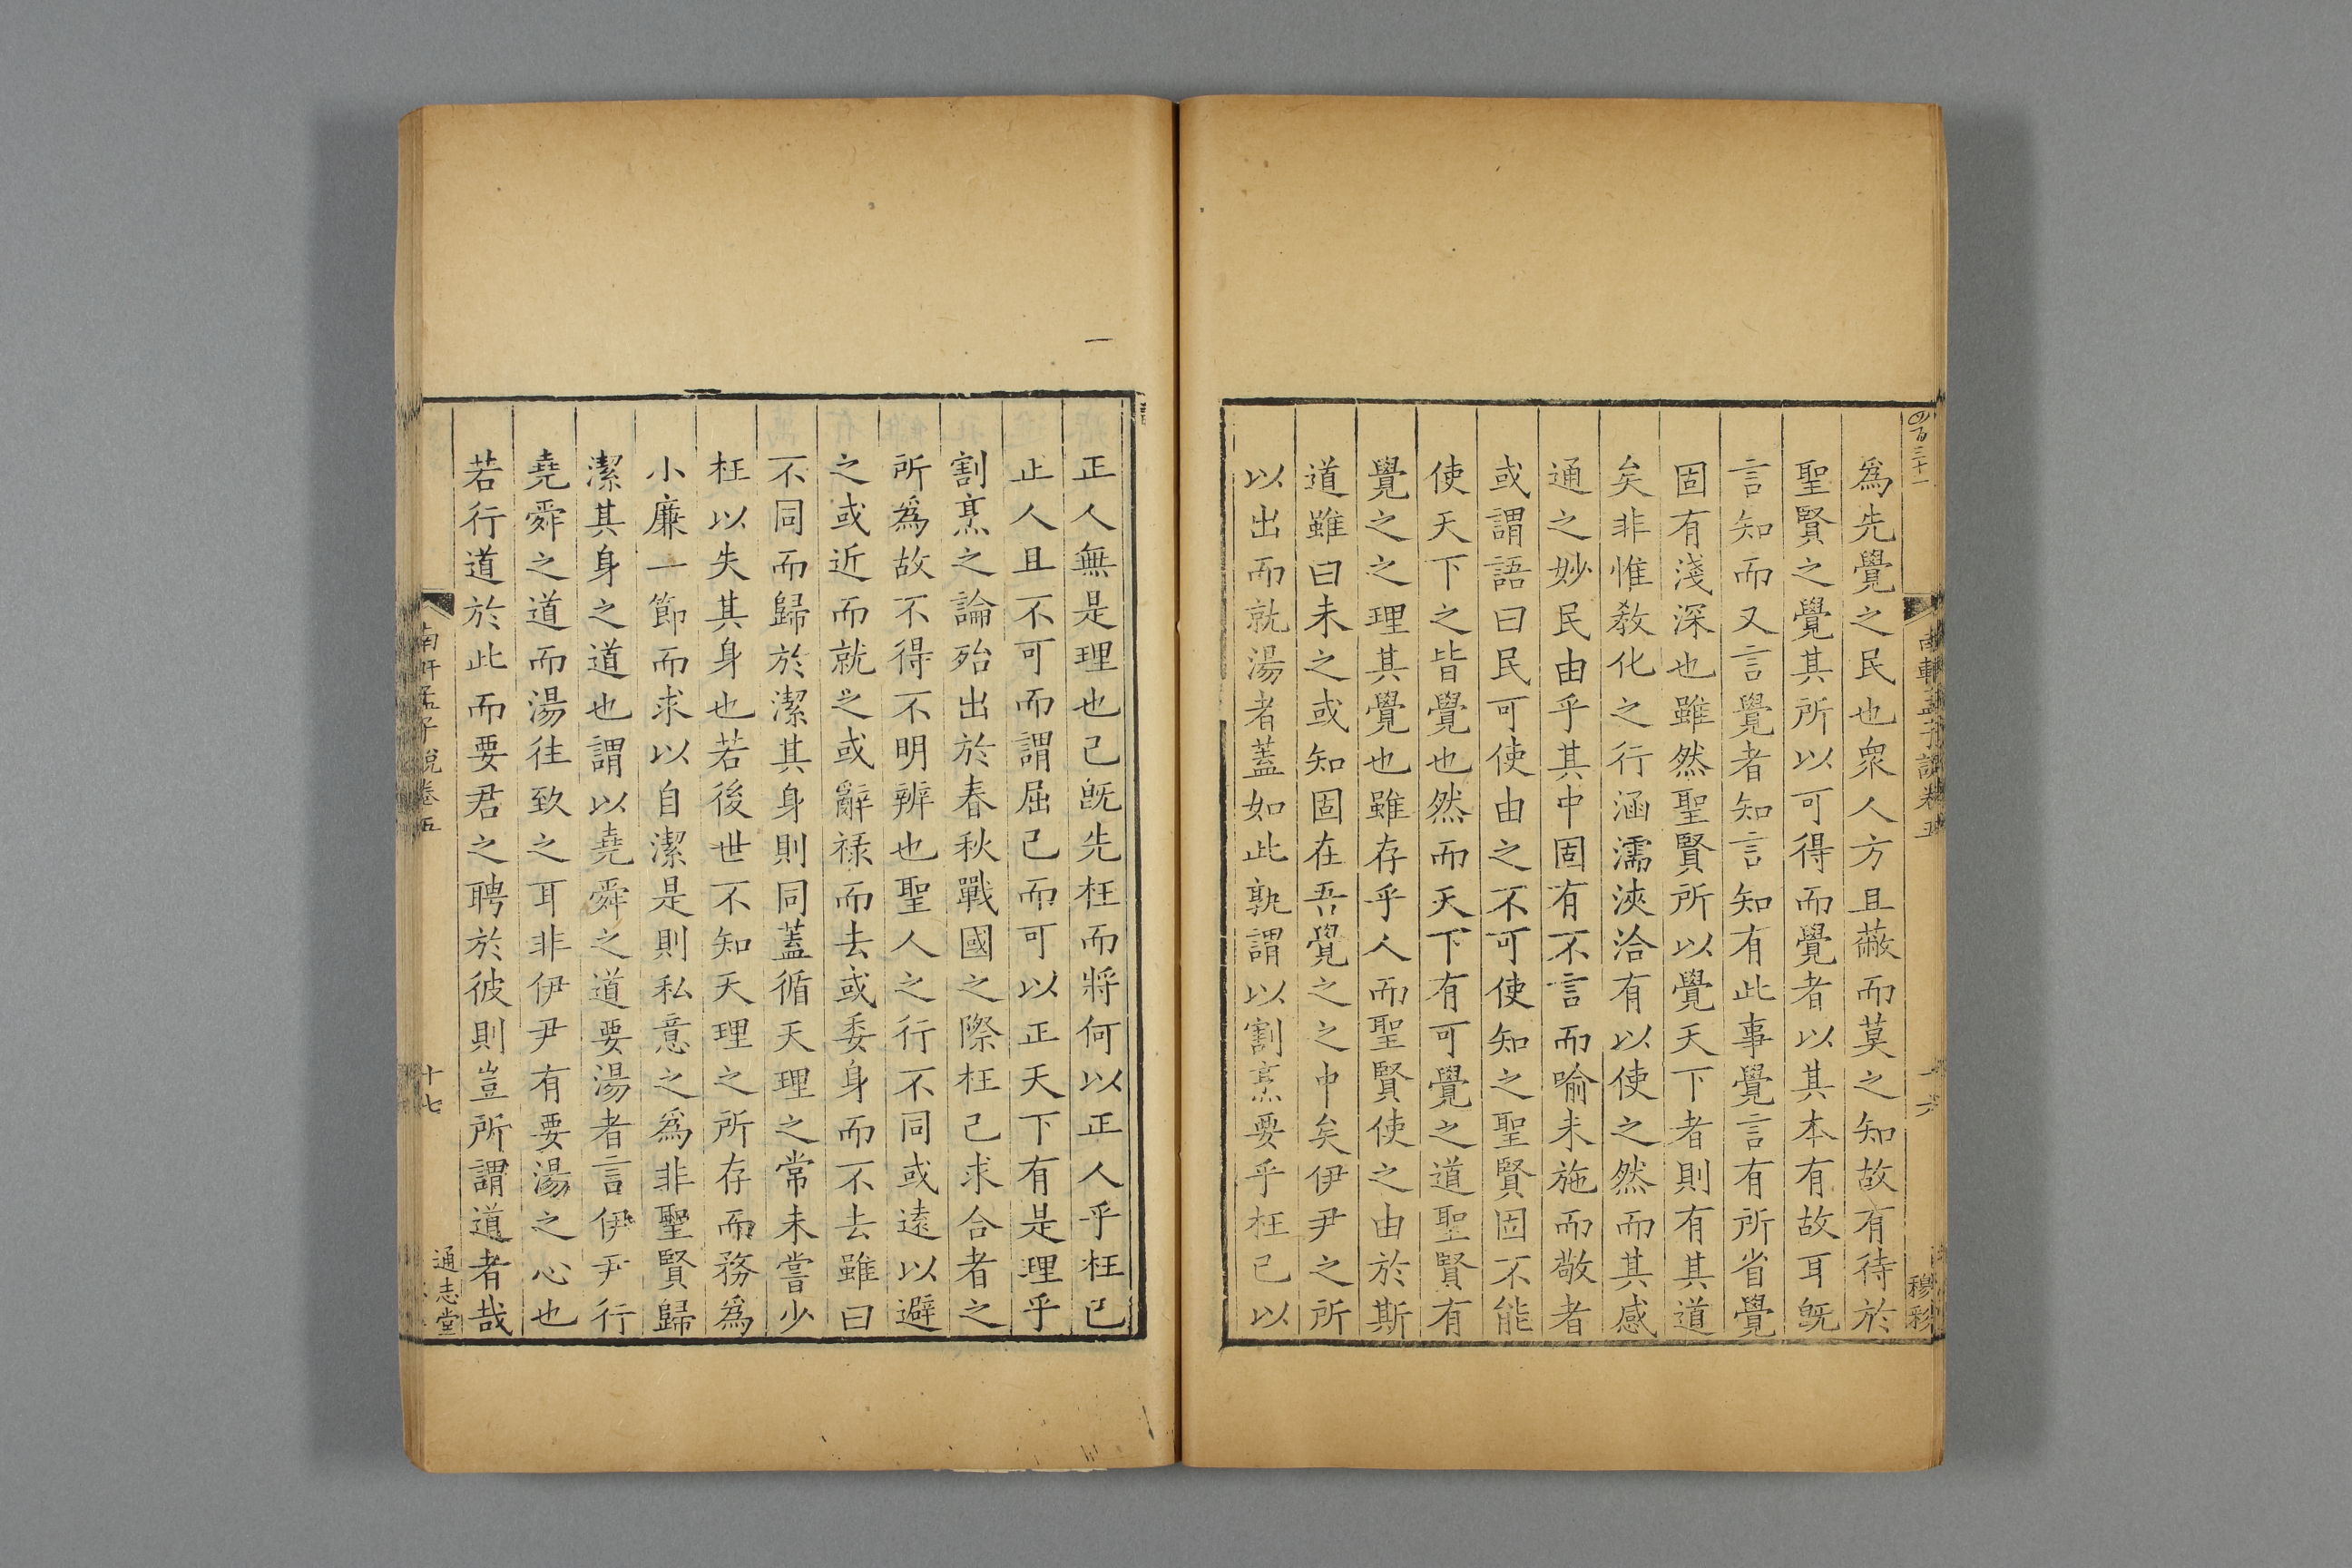 四百三十一
爲先覺之民也衆人方且蔽而莫之知故有待於
聖賢之覺其所以可得而覺者以其本有故耳旣
言知而又言覺者知言知有此事覺言有所省覺
固有淺深也雖然聖賢所以覺天下者則有其道
矣非惟敎化之行涵濡浹洽有以使之然而其感
通之妙民由乎其中固有不言而喻未施而敬者
或謂語曰民可使由之不可使知之聖賢固不能
使天下之皆覺也然而天下有可覺之道聖賢有
覺之之理其覺也雖存乎人而聖賢使之由於斯
道雖曰未之或知固在吾覺之之中矣伊尹之所
以出而就湯者蓋如此孰謂以割烹要乎枉已以
南軒孟子說卷五
十六
穆彩
一
正人無是理也己旣先枉而將何以正人乎枉已
正人且不可而謂屈己而可以正天下有是理乎
割烹之論殆出於春秋戰國之際枉己求合者之
所爲故不得不明辨也聖人之行不同或遠以避
之或近而就之或辭祿而去或委身而不去雖曰
不同而歸於潔其身則同蓋循天理之常未嘗少
枉以失其身也若後世不知天理之所存而務爲
小廉一節而求以自潔是則私意之爲非聖賢歸
潔其身之道也謂以堯舜之道要湯者言伊尹行
堯舜之道而湯往致之耳非伊尹有要湯之心也
若行道於此而要君之聘於彼則豈所謂道者哉
南軒孟子說卷五
十七
通志堂